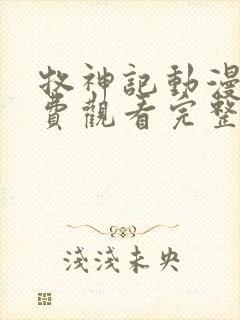 牧神記動漫
費觀看完整
淺淺未央